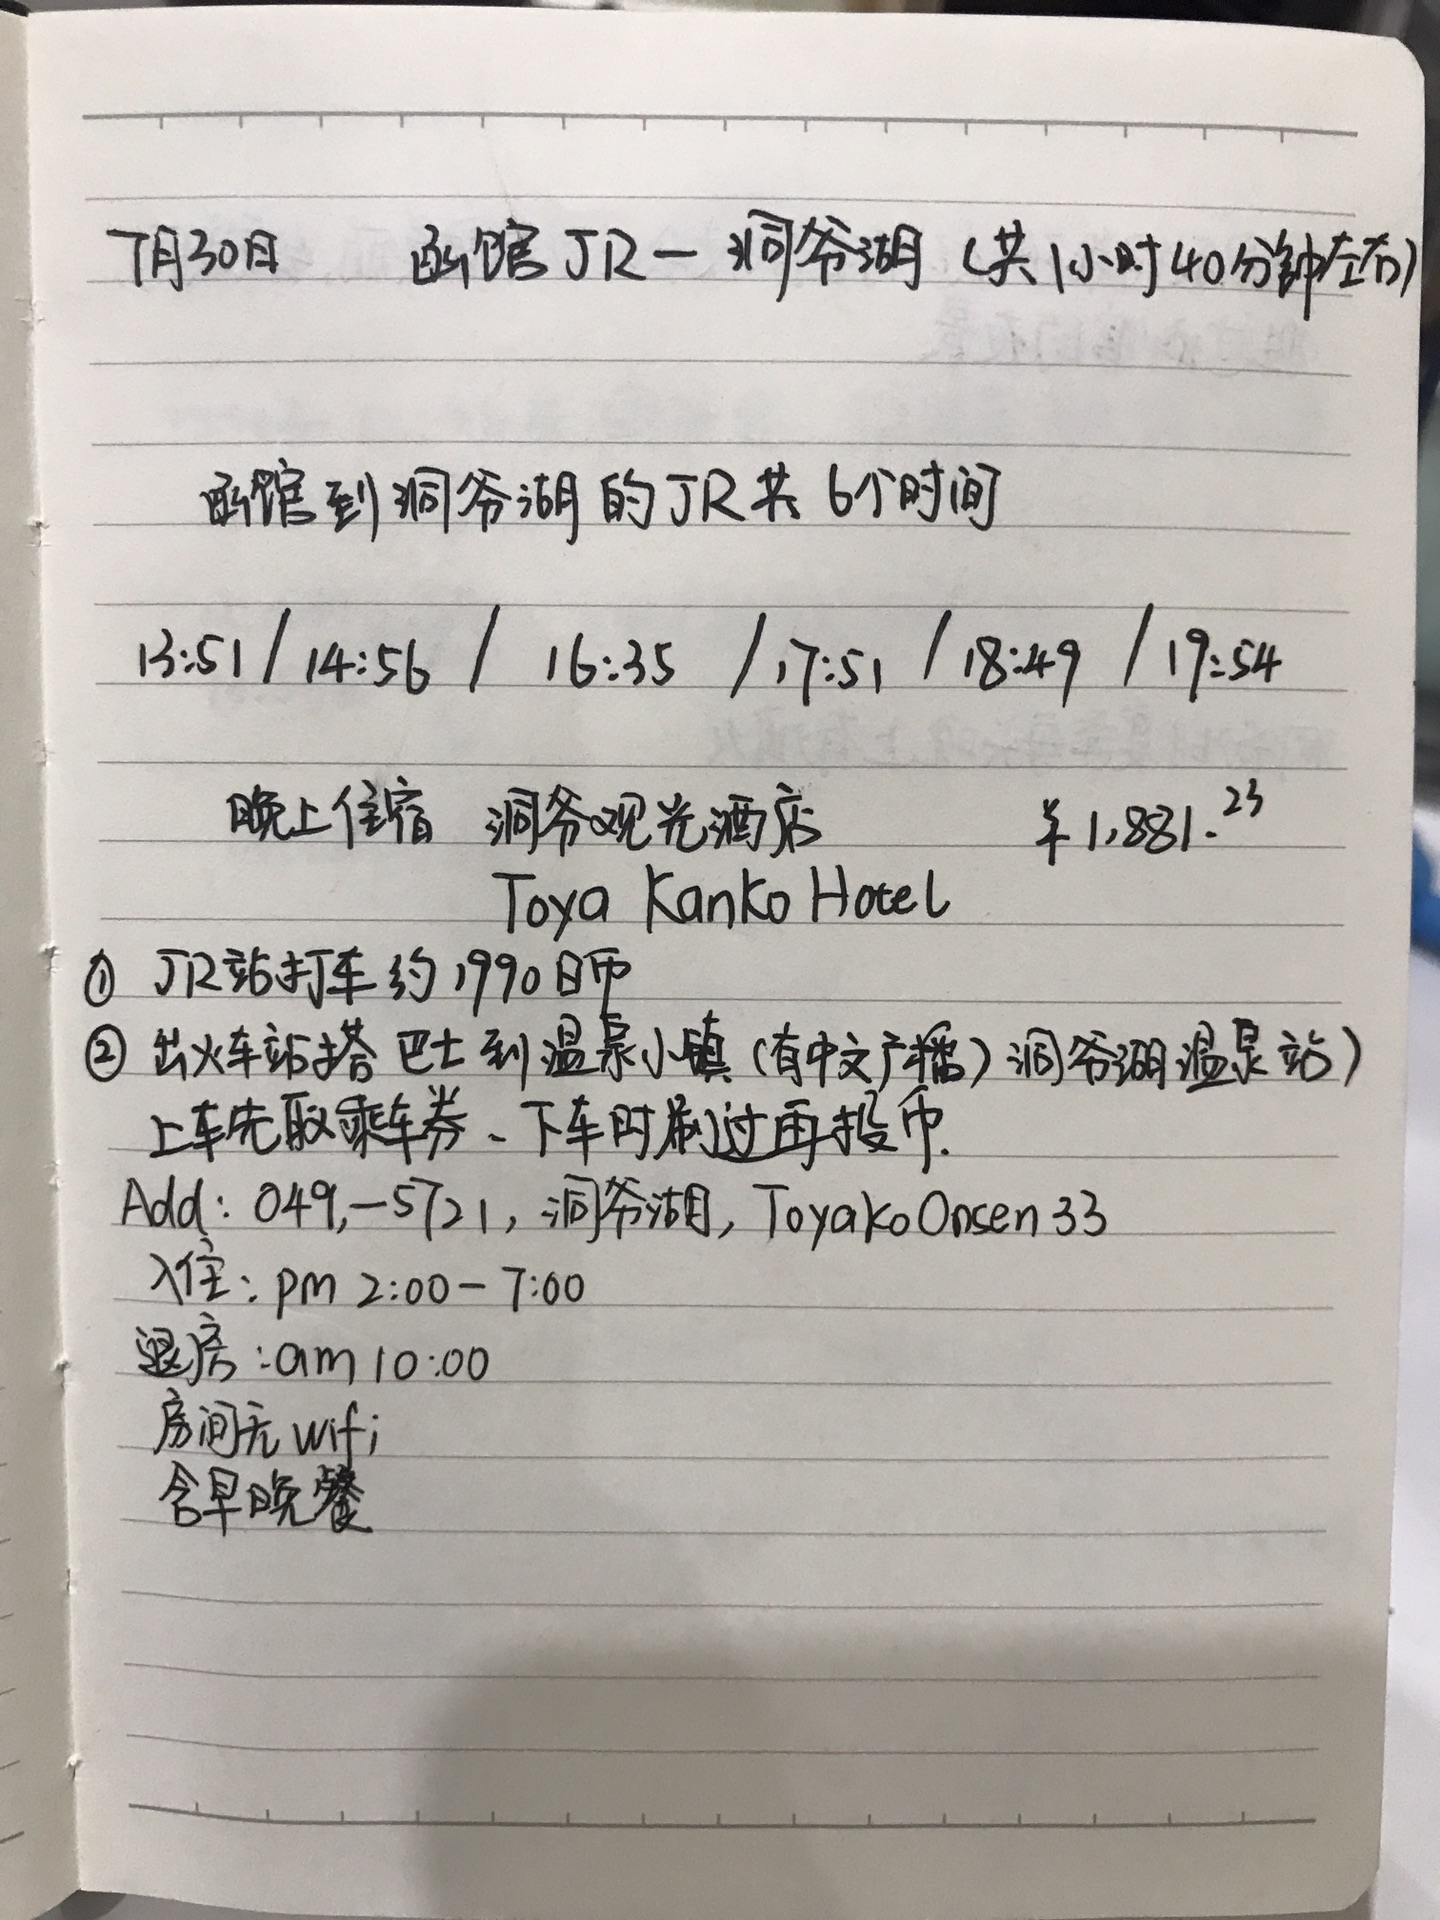 7月30日 函馆JR—洞爷湖(共1小时40分钟左右)
函馆到洞爷湖的JR共6个时间
13:51/14:56/16:35/17:51/18:49/19:54
晚上住宿 洞爷观光酒店 ¥1,881.23
Toya Kanko Hotel
① JR站打车约1990日币
② 出火车站搭巴士到温泉小镇(有中文广播)洞爷湖温泉站)
上车先取乘车券、下车时刷过再投币.
Add: 049,-5721, 洞爷湖, Toyako Onsen 33
入住: pm 2:00-7:00
退房: am 10:00
房间无wifi
含早晚餐